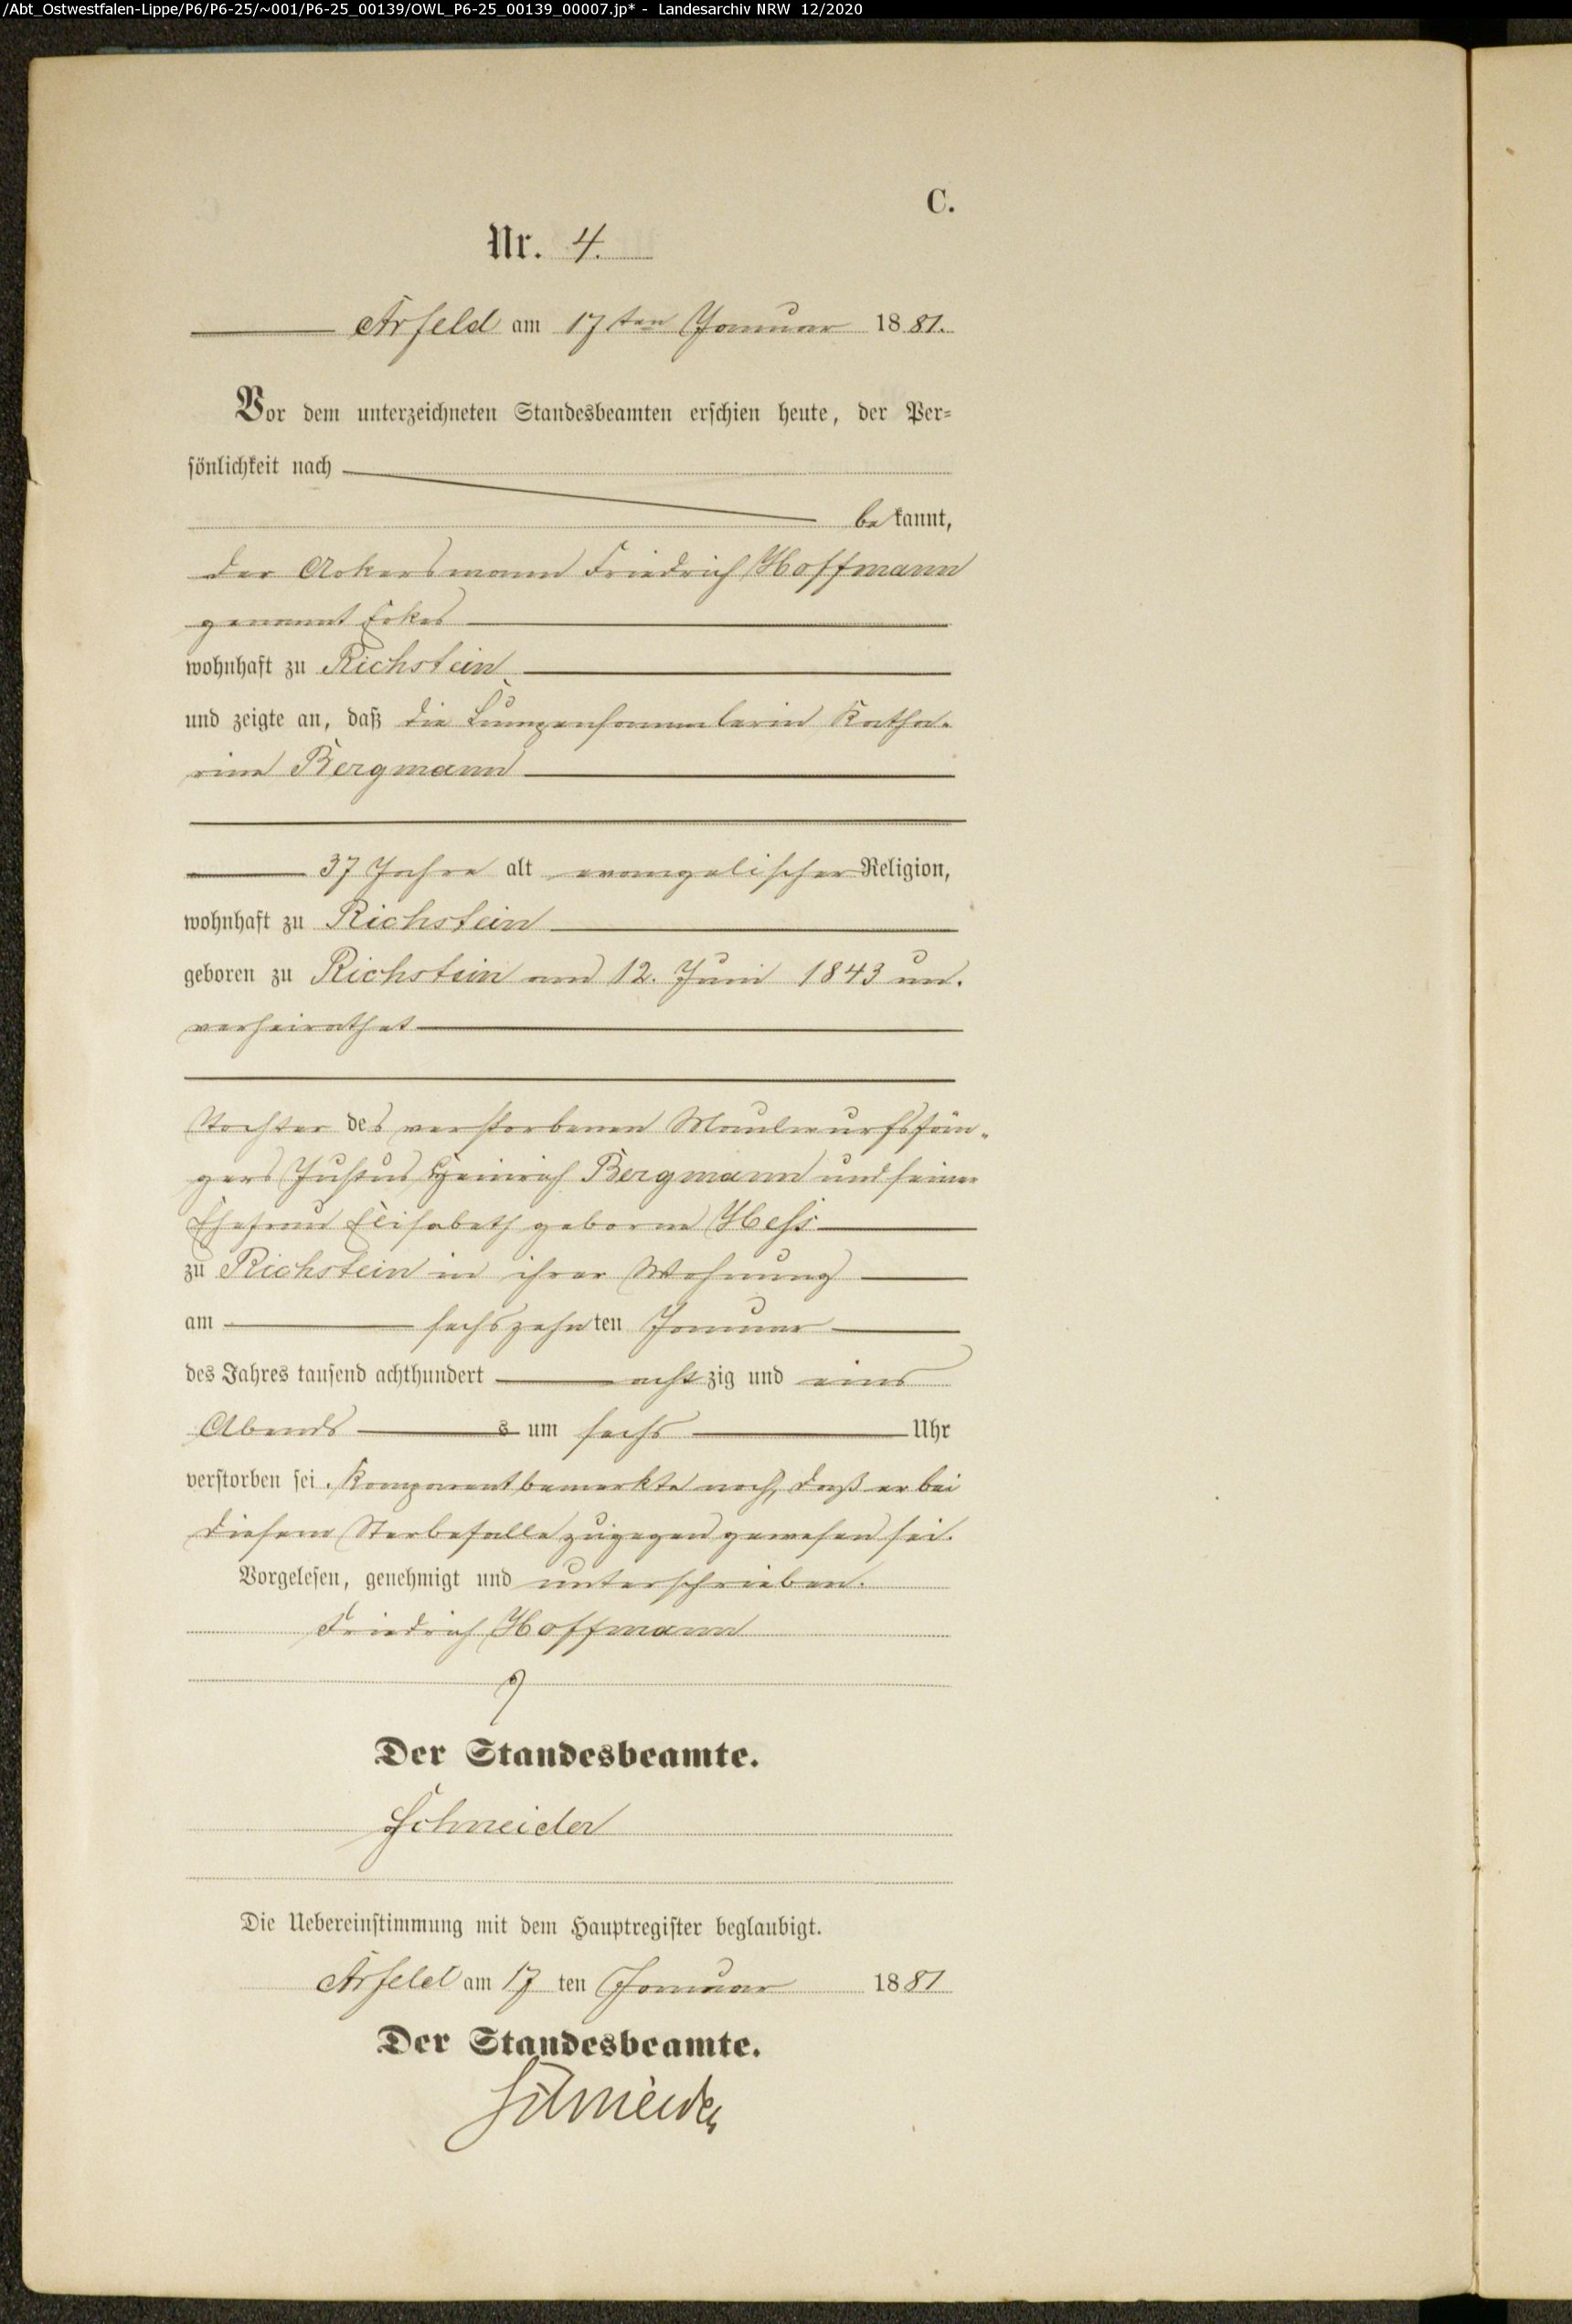 /Abt_Ostwestfalen-Lippe/P6/P6-25/~001/P6-25_00139/OWL_P6-25_00139_00007.jp* - Landesarchiv NRW 12/2020
C.
Nr. 4.
Arfeld am 17ten Januar 1881.
Vor dem unterzeichneten Standesbeamten erschien heute, der Per-
sönlichkeit nach
bekannt,
der Ackersmann Friedrich Hoffmann
genannt
wohnhaft zu Richstein
und zeigte an, daß die Lumpensammlerin Katha-
rine Bergmann
37 Jahre alt evangelischer Religion,
wohnhaft zu Richstein
geboren zu Richstein am 12. Juni 1843 un-
verheirathet
Tochter des verstorbenen Maulwurfsfän-
gers Justus Heinrich Bergmann und seiner
Ehefrau Elisabeth geborne Heß
zu Richstein in ihrer Wohnung
am sechszehnten Januar
des Jahres tausend achthundert achtzig und eins
Abends s um sechs Uhr
verstorben sei. Komparent bemerkte noch, daß er bei
diesem Sterbefalle zugegen gewesen sei.
Vorgelesen, genehmigt und unterschrieben.
Friedrich Hoffmann
Der Standesbeamte.
Schneider
Die Uebereinstimmung mit dem Hauptregister beglaubigt.
Arfeld am 17 ten Januar 1881
Der Standesbeamte.
Schneider